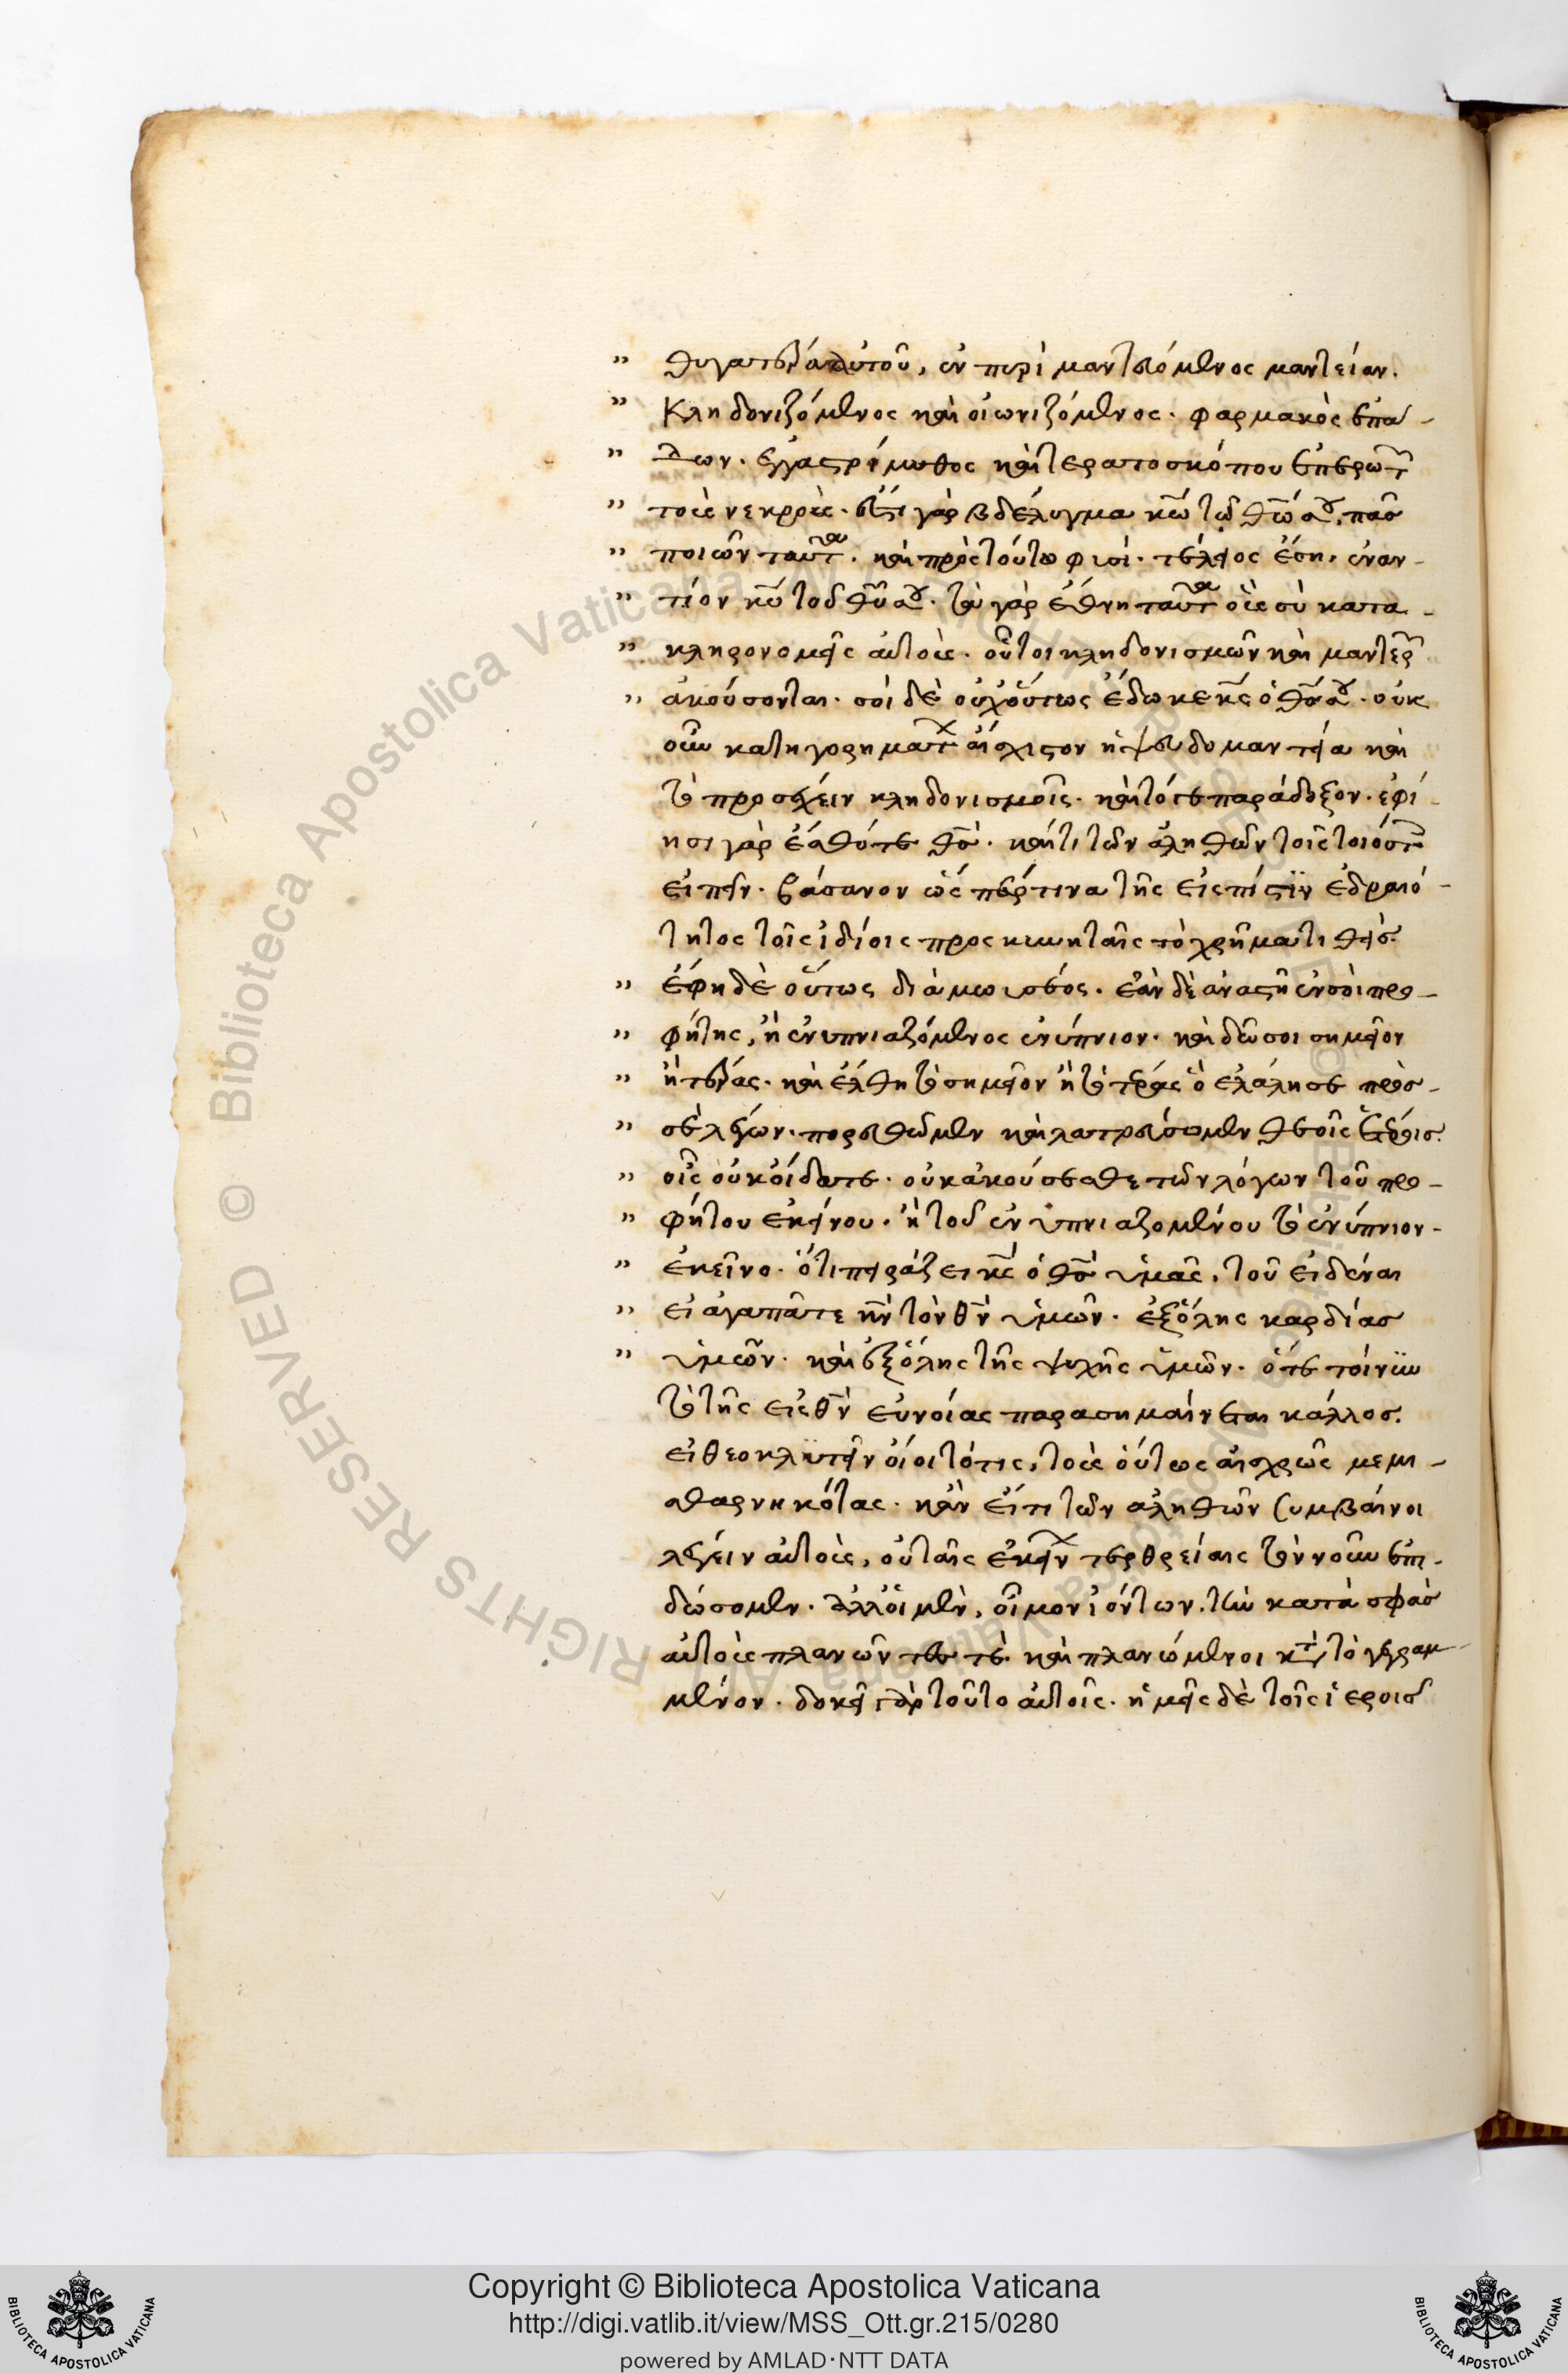 " θυγατέρα αὐτοῦ, ἐν πυρὶ μαντευόμενος μαντείαν.
" Κληδονιζόμενος καὶ οἰωνιζόμενος. φαρμακὸς ἐπα-
" δων. ἐγγαστρίμυθος καὶ τερατοσκόπου ἐπερωτ
" τοὺς νεκρούς. ἔστι γὰρ βδέλυγμα κῶ τῶ θῶ σου, πᾶσ
" ποιῶν ταῦτα. καὶ πρὸς τούτω φησί. τέλειος ἔση, ἐναν-
" τίον κυ τοῦ θυ σου. τὰ γὰρ ἔθνη ταῦτα οὓς σὺ κατα-
" κληρονομεῖς αὐτοὺς. οὗτοι κληδονισμῶν καὶ μαντει
" ἀκούσονται. σοὶ δὲ οὐχ οὕτως ἔδωκε κς ὁ θς σου. οὐκ
οῦν κατηγορημάτ αἴσχιστον ἡ ψευδομαντεία καὶ
τὸ προσέχειν κληδονισμοῖς. καὶ τό γε παράδοξον. ἐφί-
ησι γὰρ ἔσθότε θς. καί τι τῶν ἀληθῶν τοῖς τοιούτ
εἰπεῖν. βάσανον ὥσπέρ τινα τῆς εἰς πίστιν ἑδραιό-
τητος τοῖς ἰδίοις προσκυνηταῖς τὸ χρῆμα τιθείσ.
" ἔφη δὲ οὕτως διὰ μωυσέος. ἐὰν δὲ ἀναστῆ ἐν σοὶ προ-
" φήτης, ἢ ἐνυπνιαζόμενος ἐνύπνιον. καὶ δῶ σοι σημεῖον
" ἢ τέρας. καὶ ἔλθη τὸ σημεῖον ἢ τὸ τέρας ὃ ἐλάλησε πρὸσ-
" σὲ λέγων. πορευθῶμεν καὶ λατρεύσωμεν θεοῖς ἑτέροισ.
" οἷς οὐκ οἴδατε. οὐκ ἀκούσεσθε τῶν λόγων τοῦ προ-
" φήτου ἐκείνου. ἢ τοῦ ἐνυπνιαζομένου τὸ ἐνύπνιον-
" ἐκεῖνο. ὅτι πειράζει κς ὁ θς ὑμᾶς, τοῦ εἰδέναι
" εἰ ἀγαπᾶτε κν τὸν θν ὑμῶν. ἐξ ὅλης καρδίασ
" ὑμῶν. καὶ ἐξ ὅλης τῆς ψυχῆς ὑμῶν. ὅτε τοίνυν
τὸ τῆς εἰς θν εὐνοίας παρασημαίνεται κάλλοσ.
εἰ θεοκλυτεῖν οἴοιτό τις, τοὺς οὕτως αἰσχρῶς μεμι-
σθαρνηκότας. κἂν εἴ τι τῶν ἀληθῶν συμβαίνοι
λέγειν αὐτοὺς, οὐ ταῖς ἐκείν τερθρείαις τὸν νοῦν ἐπι-
δώσομεν. ἀλλ' οἱ μὲν, οἶμον ἰόντων. τὴν κατὰ σφᾶσ
αὐτοὺς πλανῶντές τε. καὶ πλανώμενοι κτ τὸ γεγραμ-
μένον. δοκεῖ γὰρ τοῦτο αὐτοῖς. ἡμεῖς δὲ τοῖς ἱεροισ
© Biblioteca Apostolica Vaticana
RIGHTS RESERVED
Copyright © Biblioteca Apostolica Vaticana
http://digi.vatlib.it/view/MSS_Ott.gr.215/0280
powered by AMLAD·NTT DATA
BIBLIOTECA APOSTOLICA VATICANA
BIBLIOTECA APOSTOLICA VATICANA